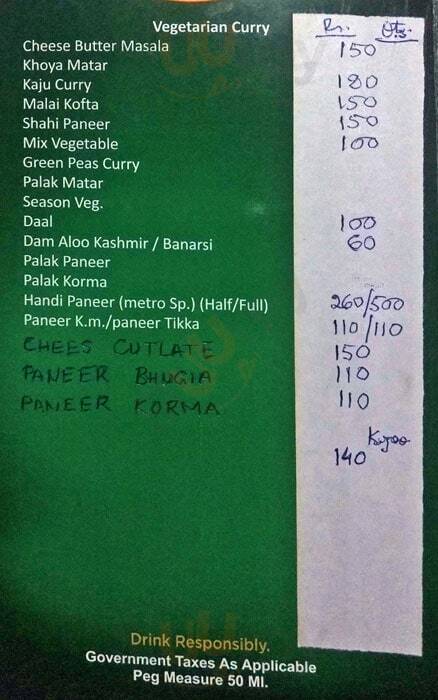 Vegetarian Curry Rs. Qty.
Cheese Butter Masala 150
Khoya Matar
Kaju Curry 180
Malai Kofta 150
Shahi Paneer 150
Mix Vegetable 100
Green Peas Curry
Palak Matar
Season Veg.
Daal 100
Dam Aloo Kashmir / Banarsi 60
Palak Paneer
Palak Korma
Handi Paneer (metro Sp.) (Half/Full) 260/500
Paneer K.m./paneer Tikka 110/110
CHEES CUTLATE 150
PANEER BHUGIA 110
PANEER KORMA 110
140
Drink Responsibly.
Government Taxes As Applicable
Peg Measure 50 Ml.